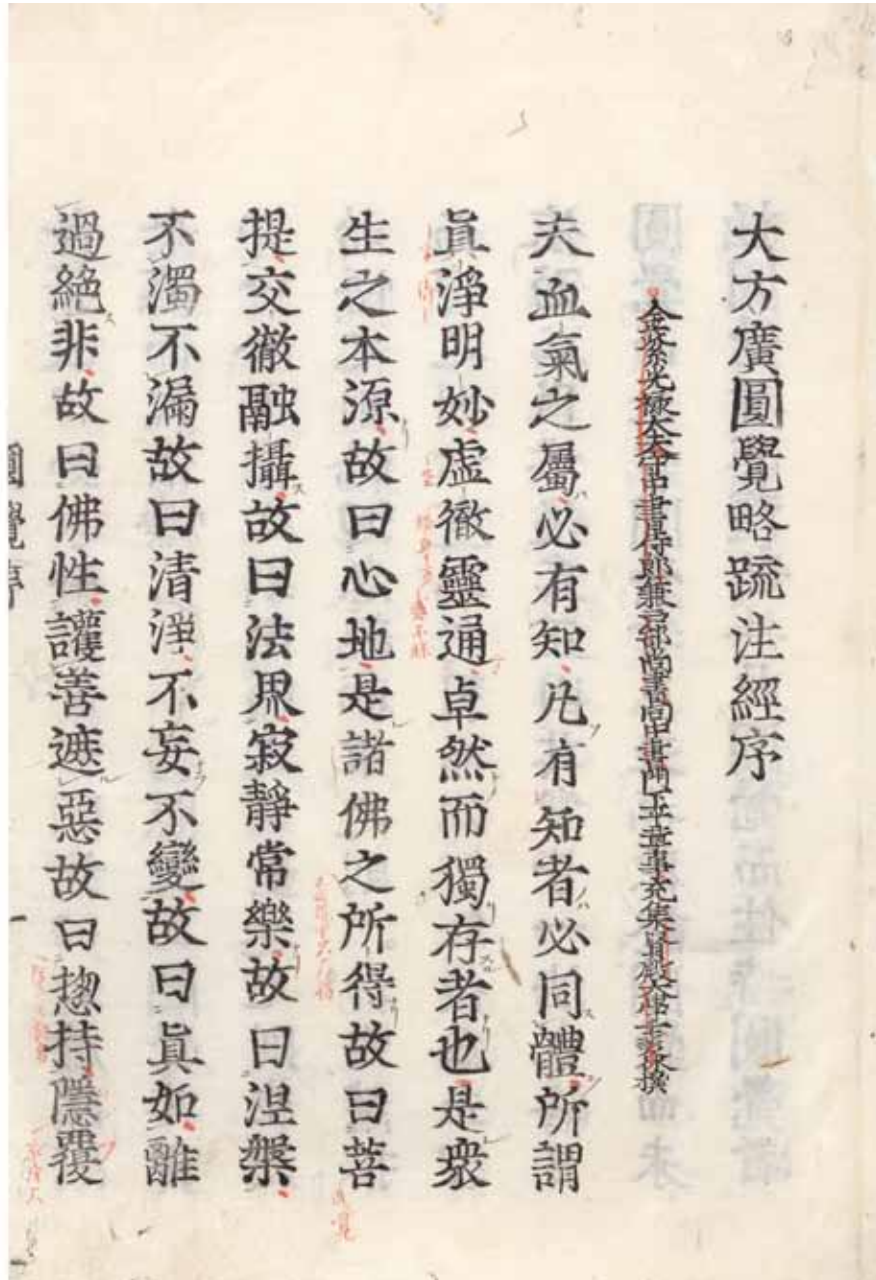 大方廣圓覺略疏注經序
金紫光祿大夫守中書侍郎兼戶部尚書同中書門下平章事充集賢殿大學士裴休撰
夫血氣之屬必有知凡有知者必同體所謂
眞淨明妙虛徹靈通卓然而獨存者也是衆
生之本源故曰心地是諸佛之所得故曰菩
提交徹融攝故曰法界寂靜常樂故曰涅槃
不濁不漏故曰清淨不妄不變故曰眞如離
過絕非故曰佛性護善遮惡故曰揔持隱覆
圓覺序 一